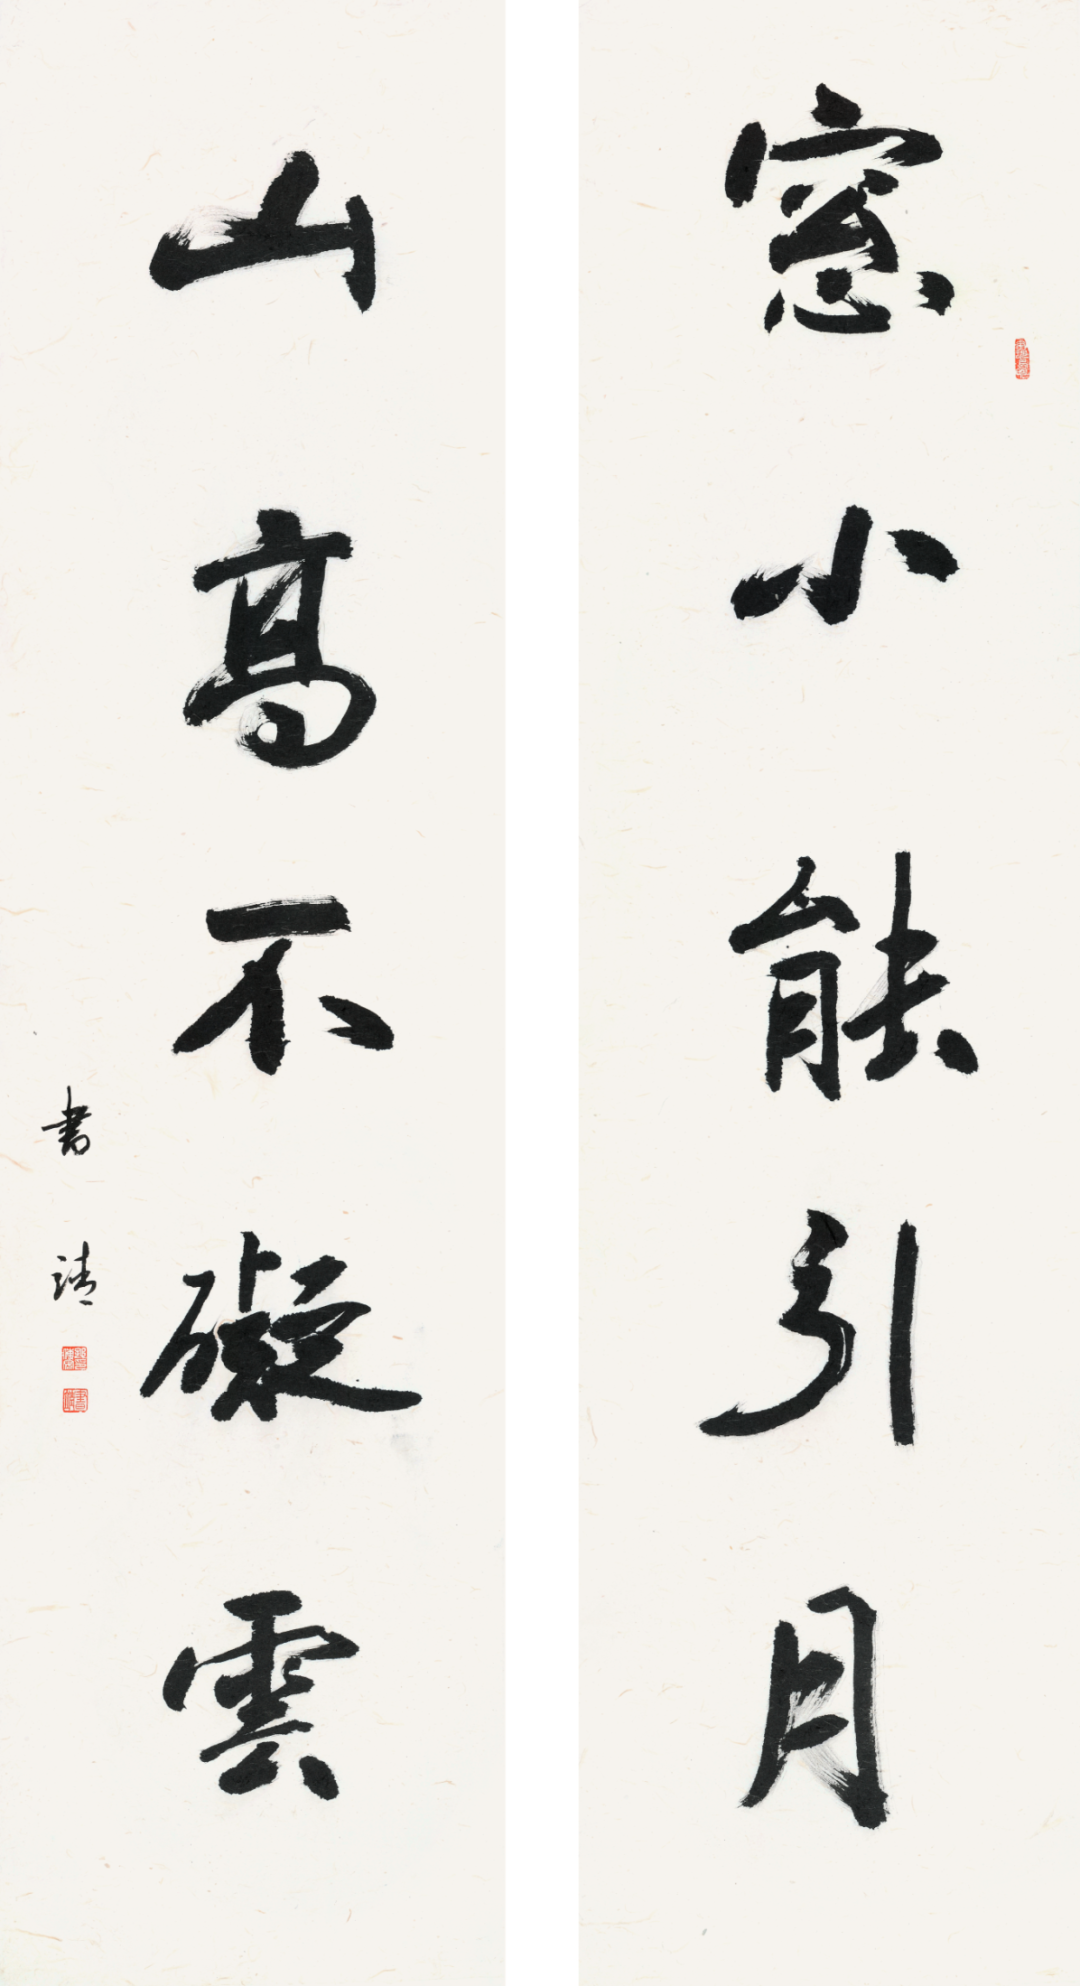 窓小能引月
山高不礙雲
書靖